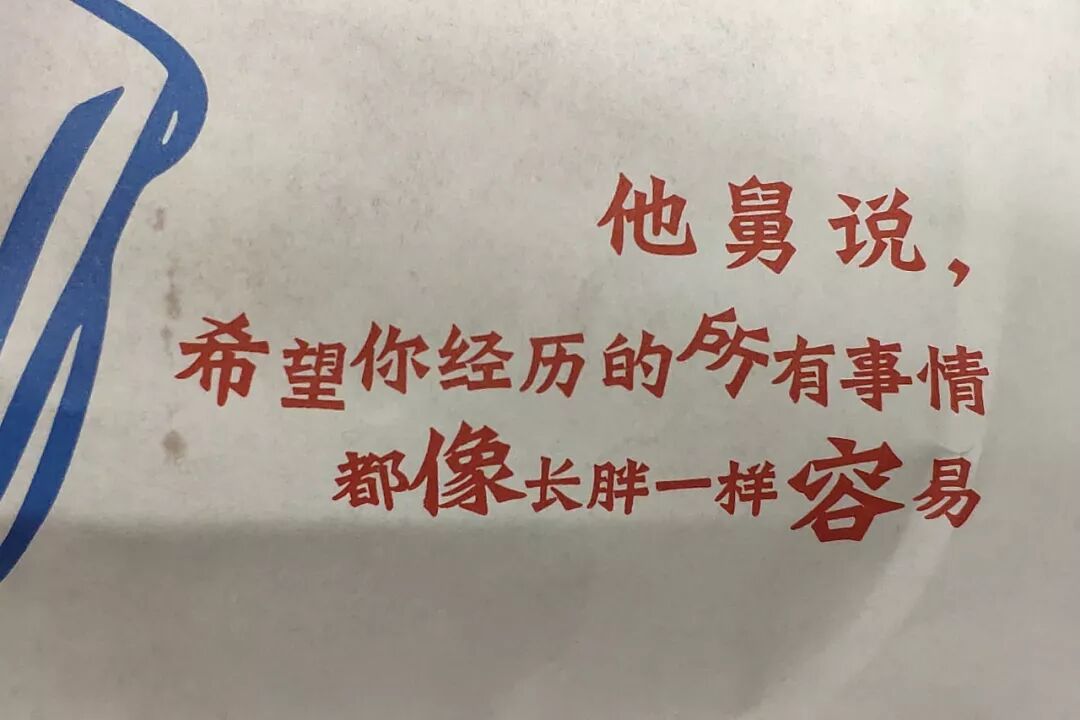 他舅说，
希望你经历的所有事情
都像长胖一样容易